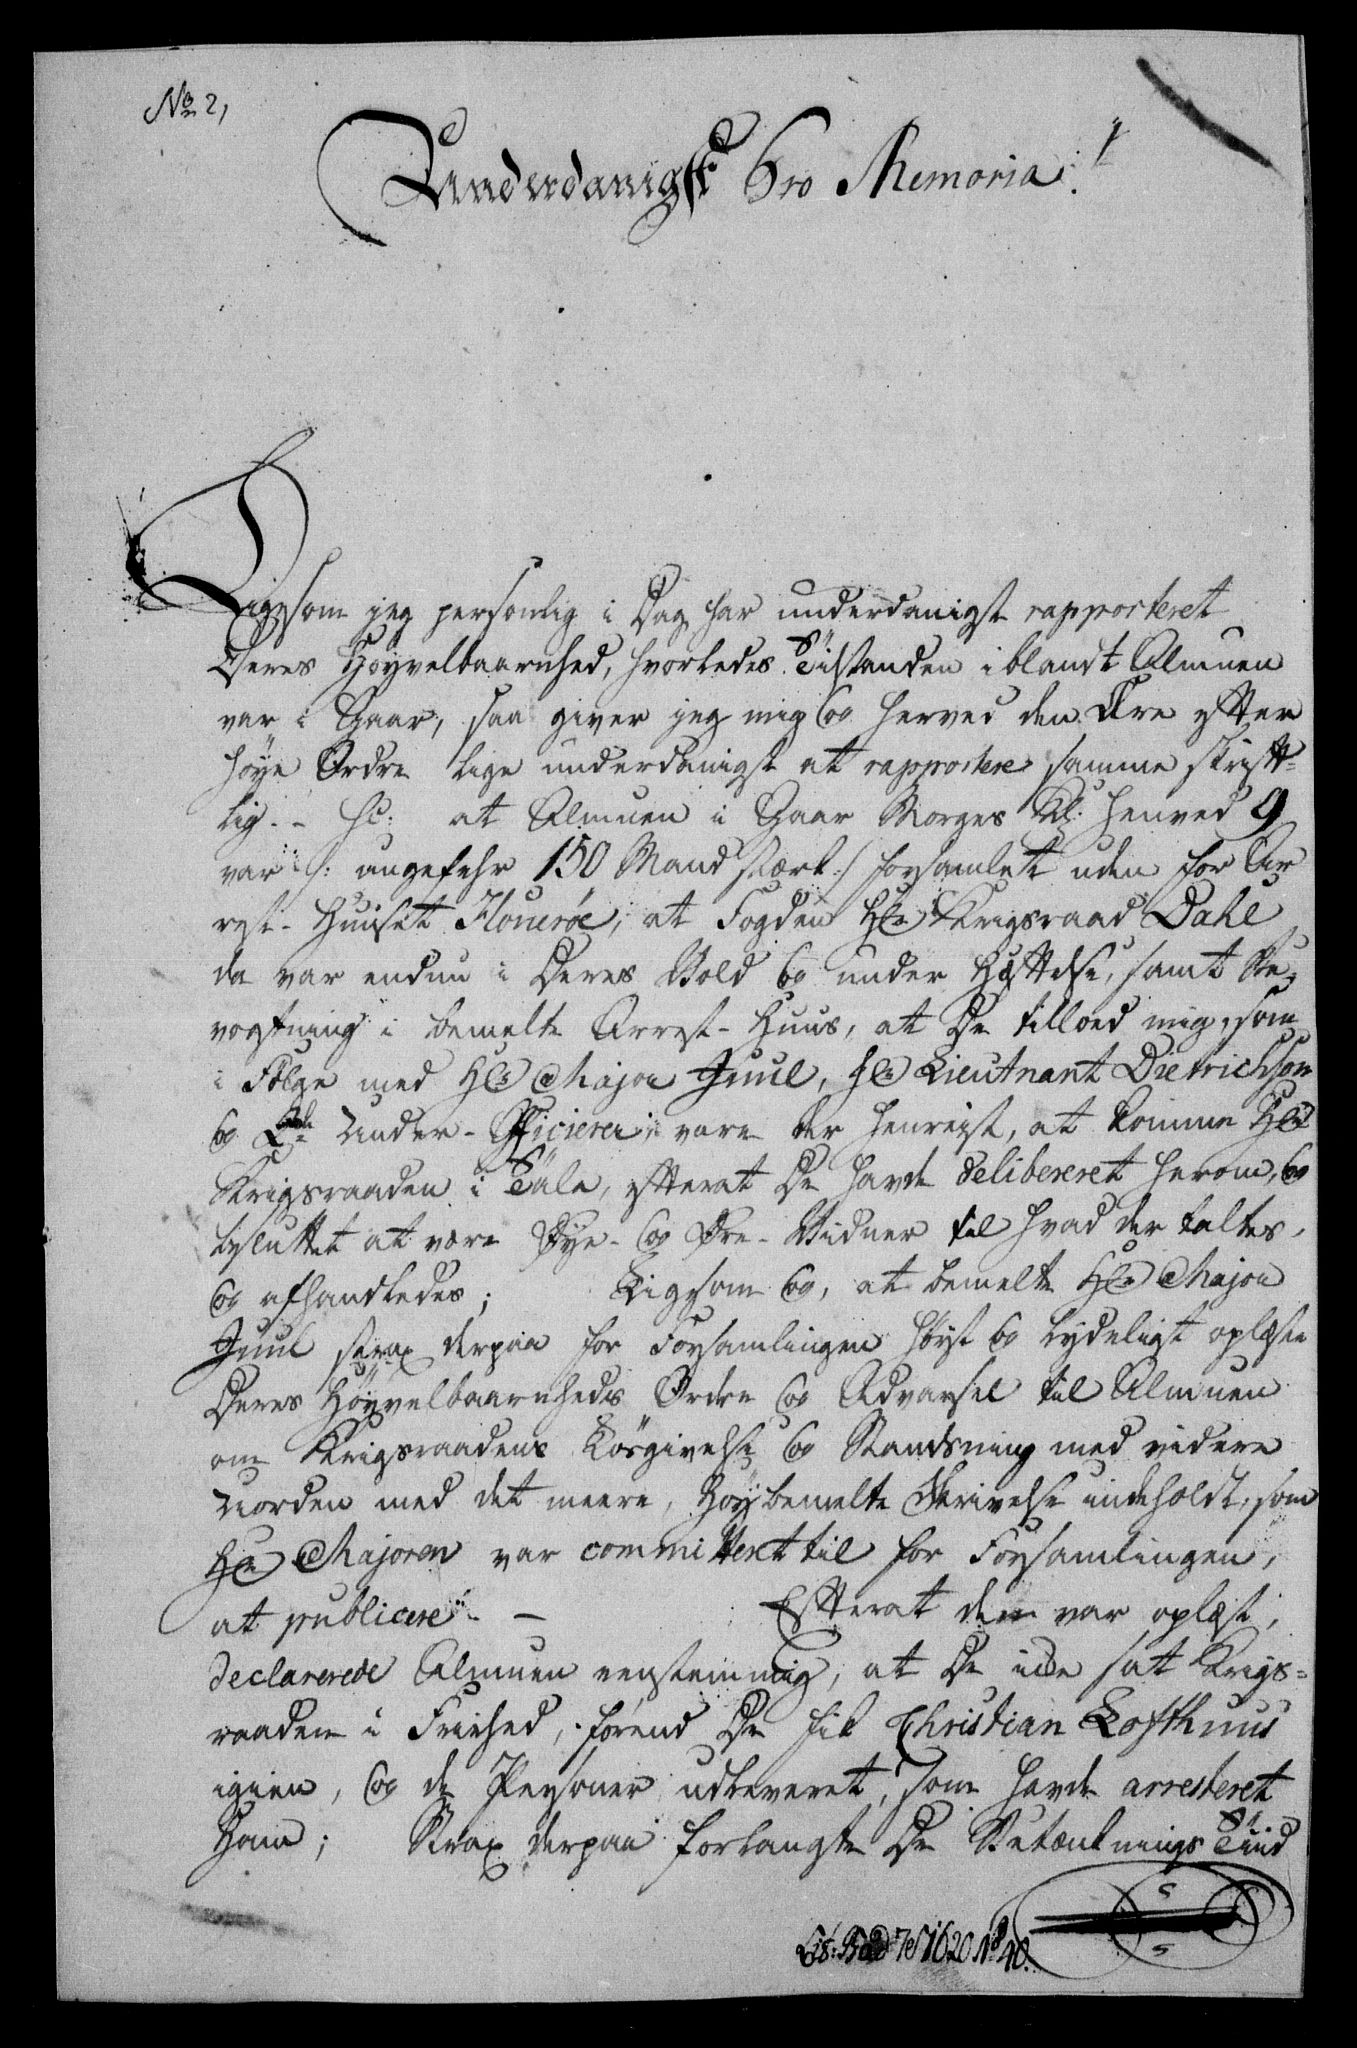 No 2,
Underdanigst Pro Memoria!
Ligesom jeg personlig i Dag har underdanigst rapporteret
Deres Höyvelbaarnhed, hvorledes Tilstanden iblandt Almuen
var i Gaar, saa giver jeg mig og herved den Ære efter
höye Ordre lige underdanigst at rapportere samme skrift-
lig. - sc: at Almuen i Gaar Morges Kl: henved 9
var /: ungefehr 150 Mand stærk :/ forsamlet uden for Ar
rest-Huuset, at Fogden Hr Krigsraad Dahl
da var endnu i Deres Vold og under Hæftelse, samt Be-
vogtning i bemelte Arrest-Huus, at De tillod mig, som
i Fölge med Hr Major Juul, Hr Lieutnant Dietrichson
og Under-Officierer vare der henreist, at komme Hr
Krigsraaden i Tale, efterat De havde delibereret herom, og
besluttet at være Öye- og Öre-Vidner til hvad der taltes,
og afhandledes; Ligesom og, at bemelte Hr Major
Juul strax derpaa for Forsamlingen höyt og tydeligt oplæste
Deres Höyvelbaarnheds Ordre og Advarsel til Almuen
om Krigsraadens Lösgivelse og Standsning med videre
Uorden med det meere, Höybemelte Skrivelse indeholdt, som
Hr Majoren var committert til for Forsamlingen,
at publicere. - - Efterat den var oplæst,
declarerede Almuen eenstemmig, at De ikke sat Krigs-
raaden i Friehed, förend De fik Christian Lofthuus
igien, og de Personer udleveret, som havde arresteret
Ham; Strax derpaa forlangte De Betænknings Tiid